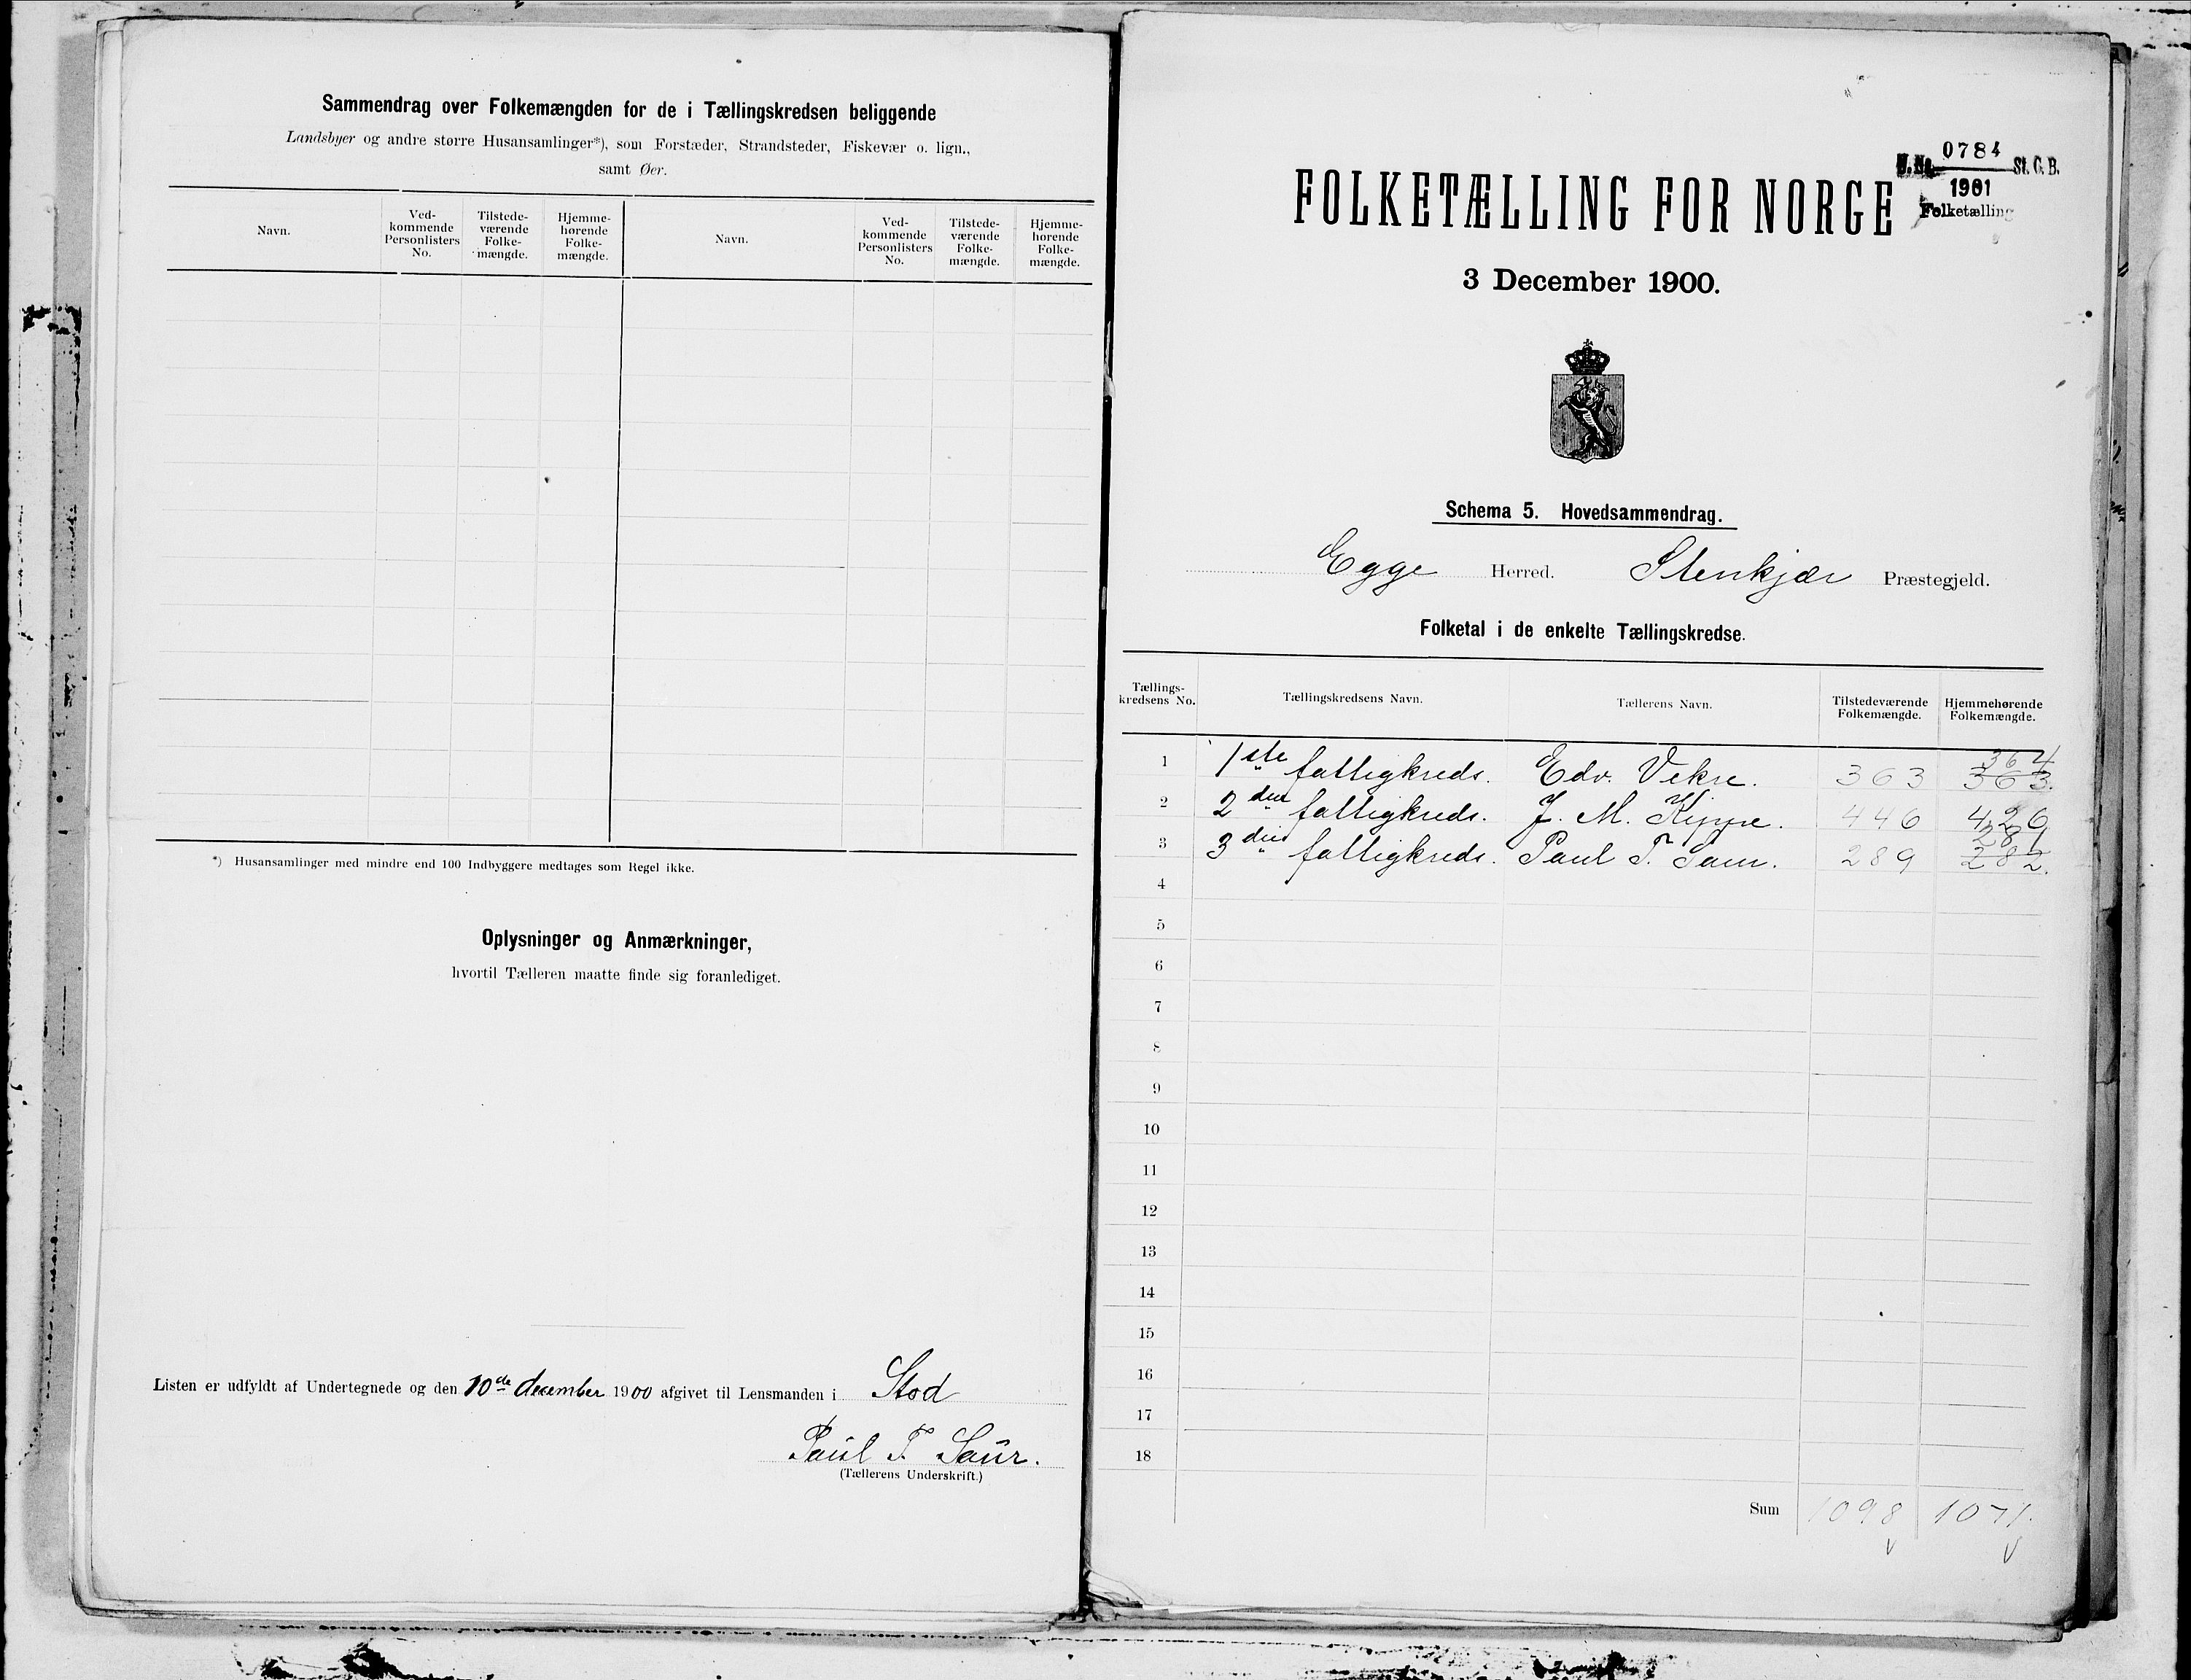 Sammendrag over Folkemængden for de i Tællingskredsen beliggende
Landsbyer og andre større Husansamlinger*), som Forstæder, Strandsteder, Fiskevær o. lign.,
samt Øer.
Navn. Ved-kommende Personlisters No. Tilstede-værende Folke-mængde. Hjemme-hørende Folke-mængde. Navn. Ved-kommende Personlisters No. Tilstede-værende Folke-mængde. Hjemme-hørende Folke-mængde.
*) Husansamlinger med mindre end 100 Indbyggere medtages som Regel ikke.
Oplysninger og Anmærkninger,
hvortil Tælleren maatte finde sig foranlediget.
Listen er udfyldt af Undertegnede og den 10de december 1900 afgivet til Lensmanden i Stod
Paul T. Saur.
(Tællerens Underskrift.)
J. No. 0784 St. C. B.
1901
Folketælling
FOLKETÆLLING FOR NORGE
3 December 1900.
Schema 5. Hovedsammendrag.
Egge Herred. Stenkjær Præstegjeld.
Folketal i de enkelte Tællingskredse.
Tællings-kredsens No. Tællingskredsens Navn. Tællerens Navn. Tilstedeværende Folkemængde. Hjemmehørende Folkemængde.
364
1 1ste fattigkreds. Edv. Vekre. 363 363.
2 2den fattigkreds. J. M. Kippe. 446 426
281
3 3die fattigkreds. Paul T. Saur. 289 282.
4
5
6
7
8
9
10
11
12
13
14
15
16
17
18
Sum 1098 1071.